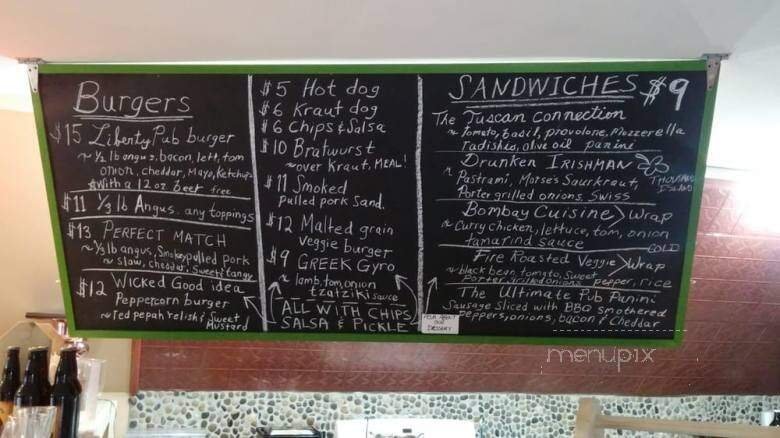 Burgers
$15 Liberty Pub burger
~ 1/2 lb angus, bacon, lett, tom
onion, cheddar, Mayo, Ketchup
with a 12 oz beer free
$11 1/3 lb Angus. any toppings
$13 PERFECT MATCH
~ 1/3 lb angus, Smokey pulled pork
~ slaw, cheddar, Sweet & tangy
$12 Wicked Good idea
Peppercorn burger
~ red pepah relish & Sweet
Mustard
$5 Hot dog
$6 Kraut dog
$6 Chips & Salsa
$10 Bratwurst
~ over Kraut, MEAL!
$11 Smoked
pulled pork Sand.
$12 Malted grain
Veggie burger
$9 GREEK Gyro
~ lamb, tom, onion
tzatziki sauce
ALL WITH CHIPS
SALSA & PICKLE
SANDWICHES $9
The Tuscan Connection
~ Tomato, basil, provolone, Mozzerella
radishes, olive oil panini
Drunken IRISHMAN
~ Pastrami, Morse's Saurkraut,
Porter grilled onions, Swiss
THOUSAND
ISLAND
Bombay Cuisine > Wrap
~ Curry chicken, lettuce, tom, onion
tamarind sauce
COLD
Fire Roasted Veggie > Wrap
~ black bean, tomato, Sweet pepper, rice
Porter grilled onions
The Ultimate Pub Panini
Sausage Sliced with BBQ smothered
peppers, onions, bacon & Cheddar
ABOUT
OUR
DESSERT
menupix